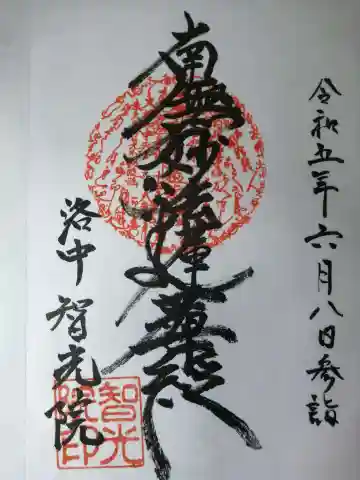 令和五年六月八日参詣
南無妙法蓮華経
洛中 智光院
智光
院印